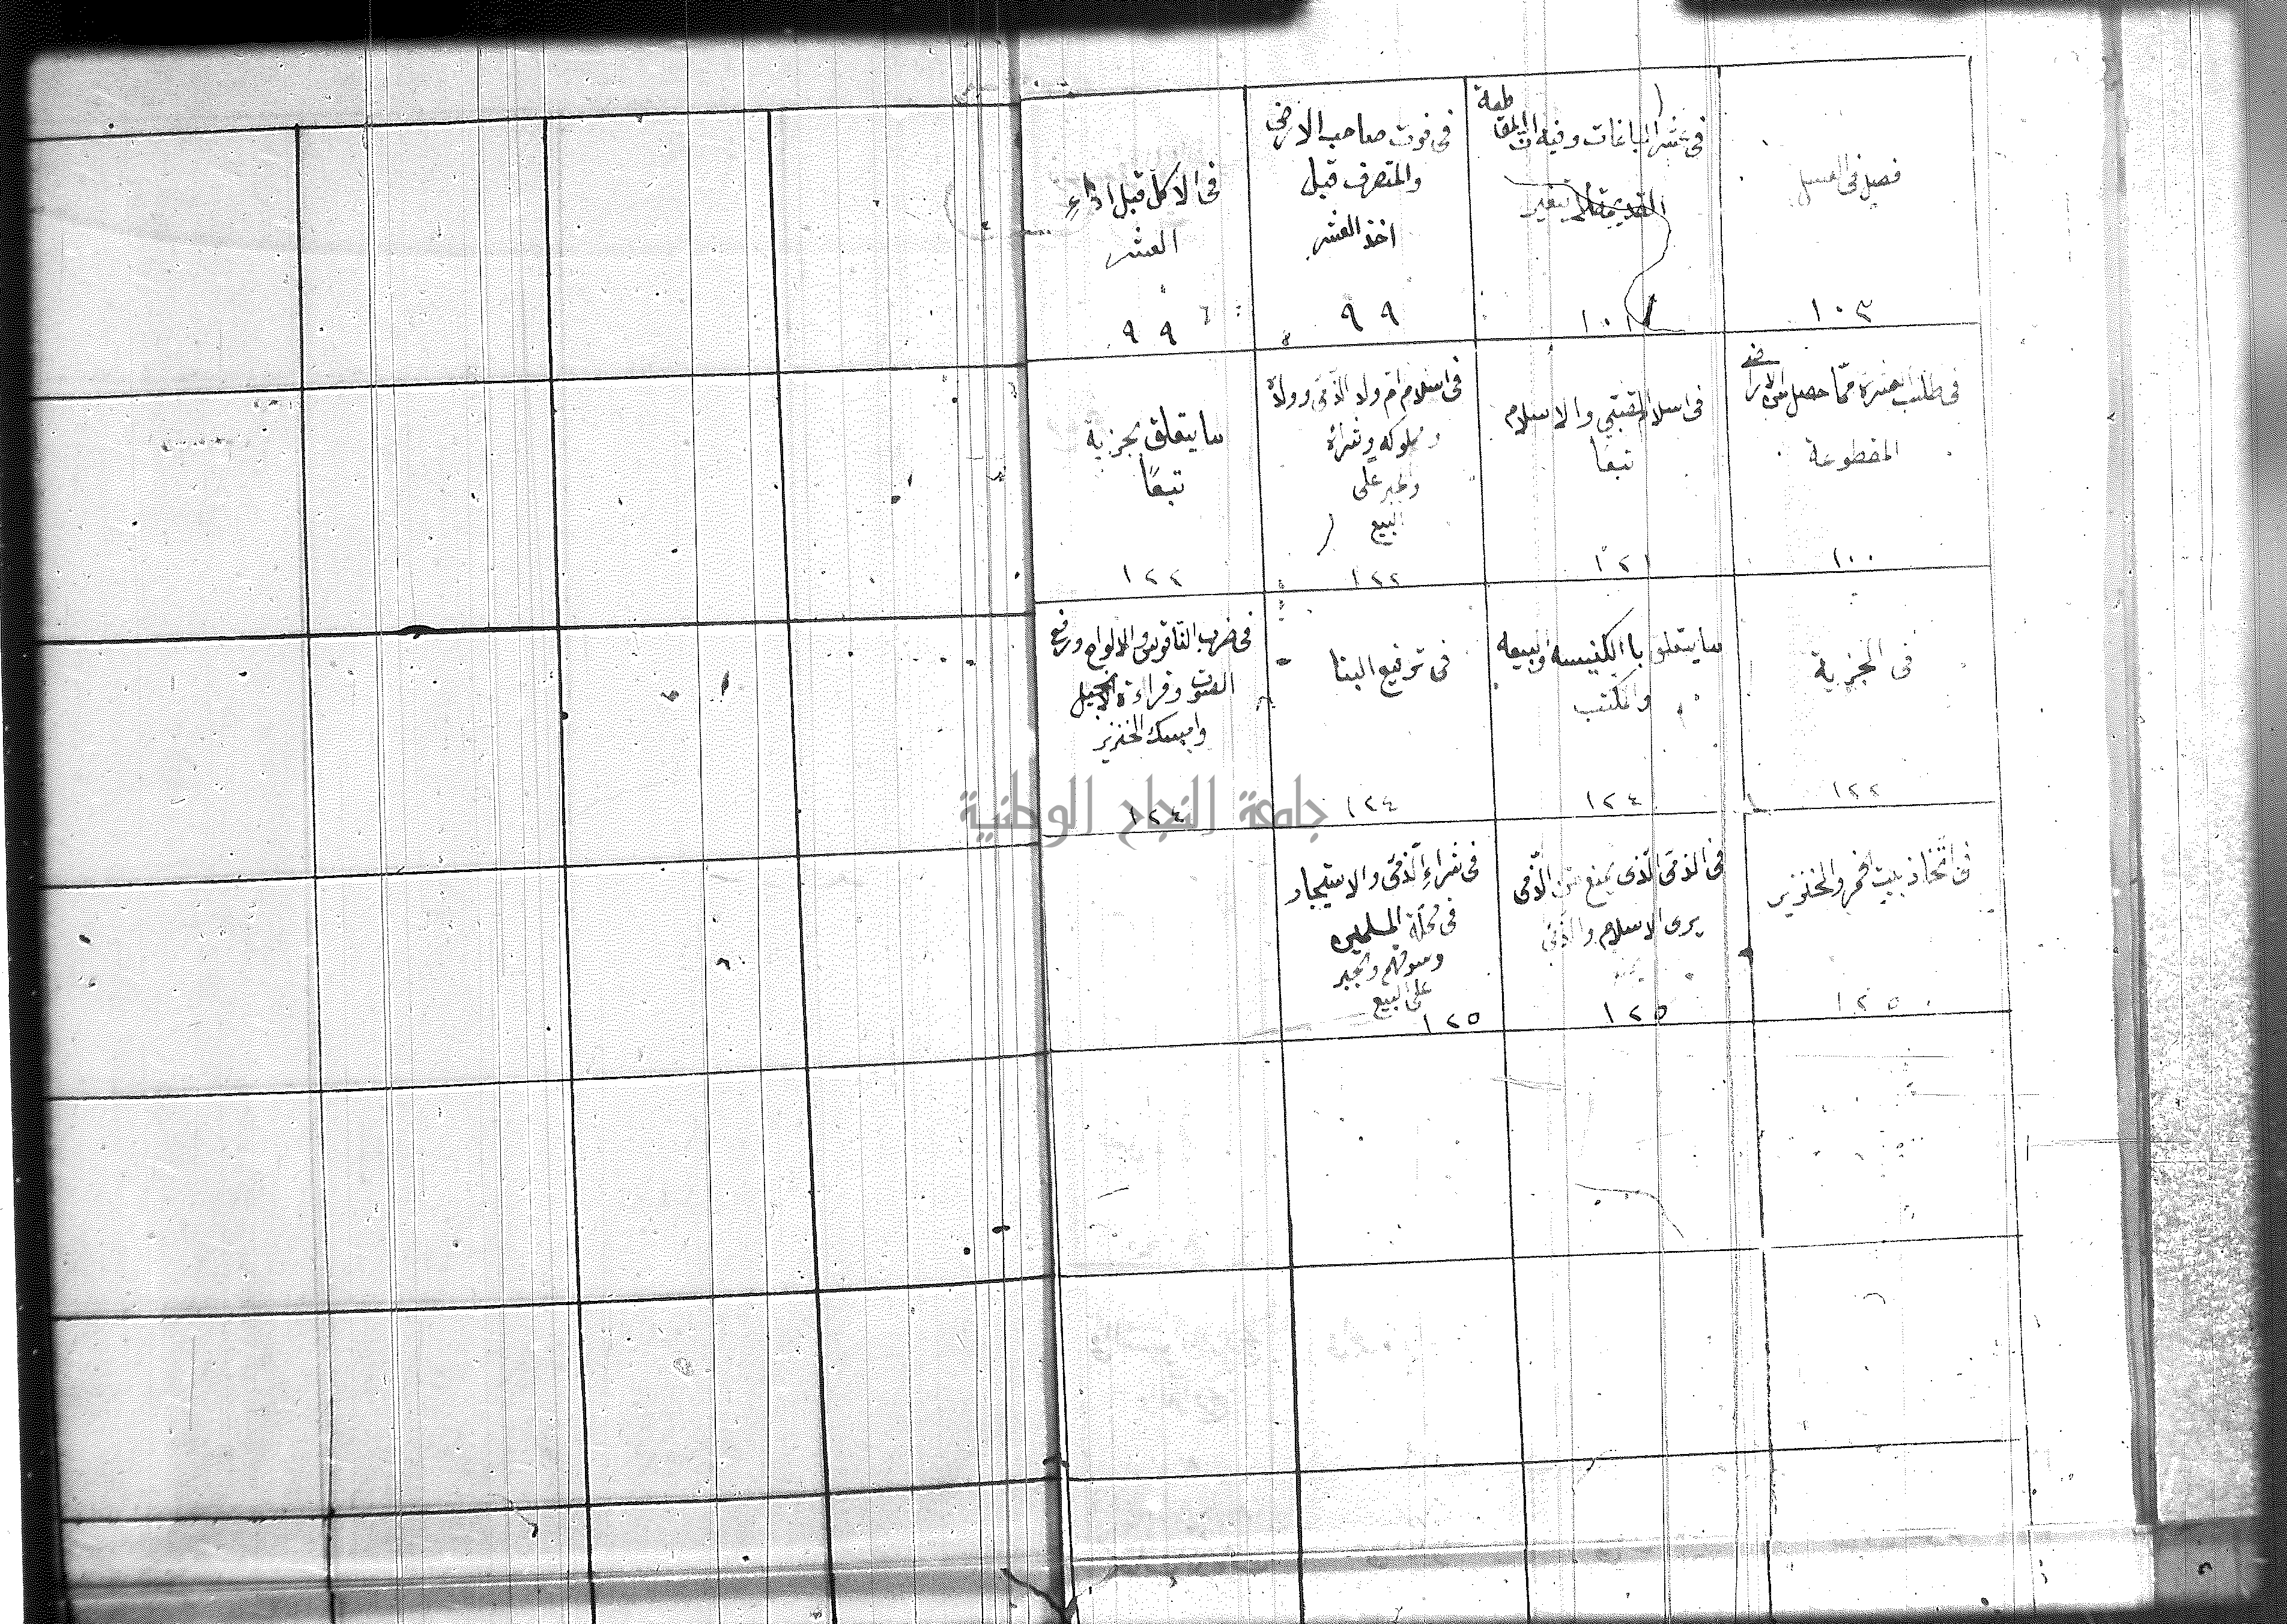 فصل فى العسل
١٠٣
فى عشر الباغات وفيه ان المقاطعة
القديمة لا تتغير
١٠١
فى فوت صاحب الارض
والمتصرف قبل
اخذ العشر
٩٩
فى الاكل قبل اداء
العشر
٩٩
فى طلب العشرة مما حصل من الاراضى
المقطوعة
١٠٠
فى اسلام الصبي والاسلام
تبعا
١٢١
فى اسلام ام ولد الذمى وولده
ومملوكه وشراؤه
والجبر على
البيع
١٢٢
ما يتعلق بجزية
تبعًا
١٢٢
فى الجزية
١٢٢
ما يتعلق با الكنيسه والبيعه
والمكتب
١٢٤
فى ترفيع البنا
١٢٤
فى ضرب الناقوس والالواح ورفع
الصوت وقراءة الانجيل
وامساك الخنزير
١٢٤
فى اتخاذ بيت خمر والخنزير
١٢٥
فى الذمى الذى يمنع من الذمى
يرى الاسلام والذمى
١٢٥
فى شراء الذمى والاستيجار
فى محلة المسلمين
وسوقهم والجبر
على البيع
١٢٥
جامعة النجاح الوطنية